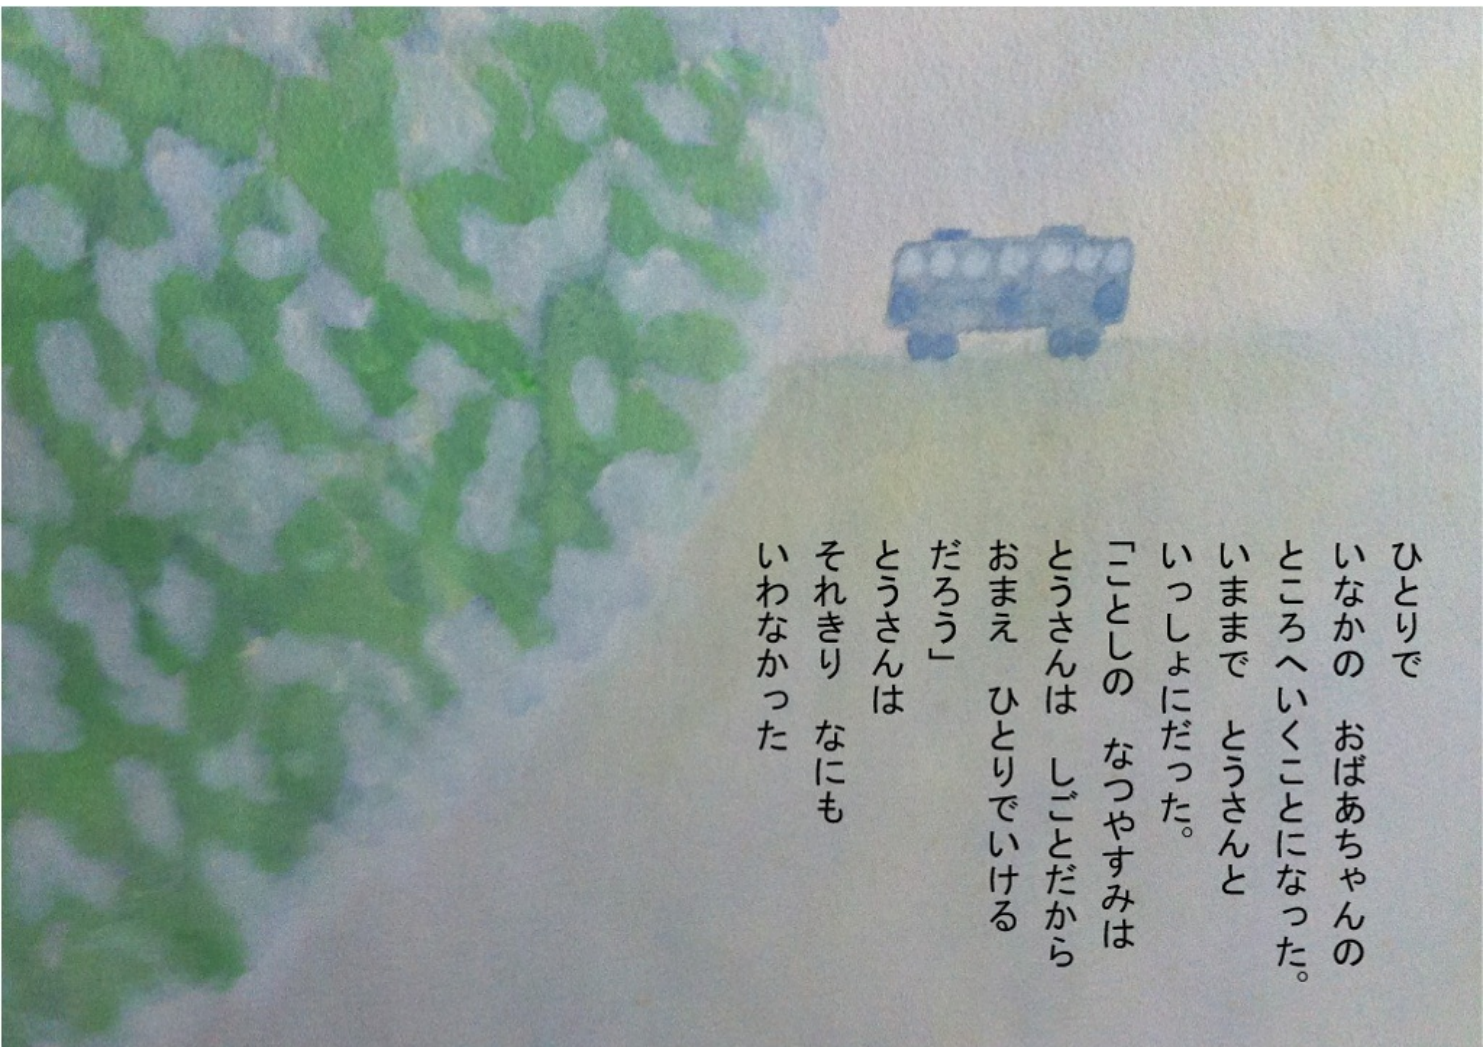 ひとりで
いなかの　おばあちゃんの
ところへいくことになった。
いままで　とうさんと
いっしょにだった。
「ことしの　なつやすみは
とうさんは　しごとだから
おまえ　ひとりでいける
だろう」
とうさんは
それきり　なにも
いわなかった